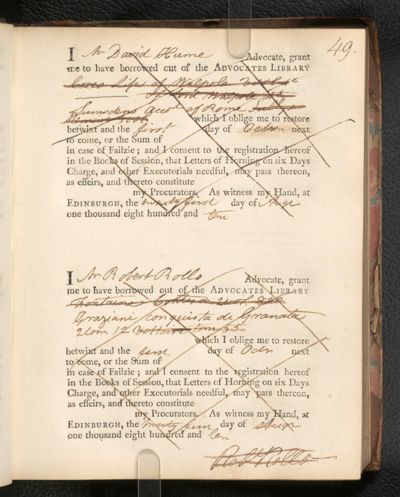 49.
I Mr David Hume Advocate, grant
me to have borrowed out of the ADVOCATES LIBRARY
Life of
of Rome
which I oblige me to restore
betwixt and the first day of Octr next
to come, or the Sum of
in case of Failzie; and I consent to the registration hereof
in the Books of Session, that Letters of Horning on six Days
Charge, and other Executorials needful, may pass thereon,
as effeirs, and thereto constitute
my Procurators. As witness my Hand, at
EDINBURGH, the twenty first day of
one thousand eight hundred and ten
I Mr Robert Rollo Advocate, grant
me to have borrowed out of the ADVOCATES LIBRARY
Fontaines
Graziani Conquista di Granata
2 tom 12
which I oblige me to restore
betwixt and the first day of Octr next
to come, or the Sum of
in case of Failzie; and I consent to the registration hereof
in the Books of Session, that Letters of Horning on six Days
Charge, and other Executorials needful, may pass thereon,
as effeirs, and thereto constitute
my Procurators. As witness my Hand, at
EDINBURGH, the twenty first day of
one thousand eight hundred and ten
Robt Rollo